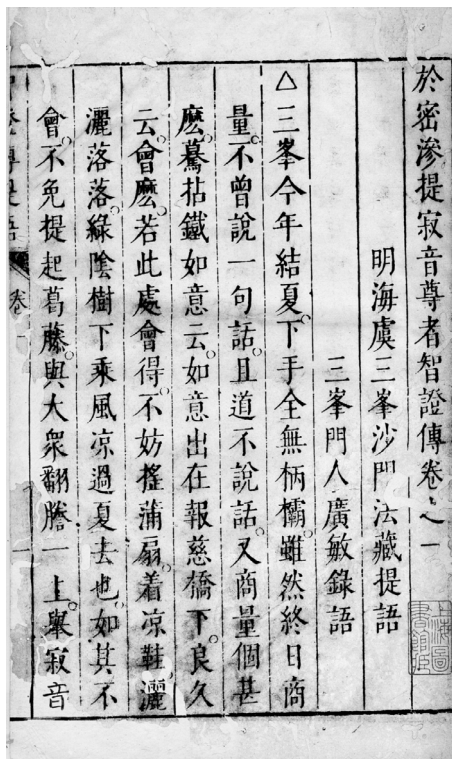 於密滲提寂音尊者智證傳卷之一
明海虞三峯沙門法藏提語
三峯門人廣敏錄語
△三峯今年結夏。下手全無柄欛。雖然終日商
量。不曾說一句話。且道不說話。又商量個甚
麽。驀拈鐵如意云。如意出在報慈橋下。良久
云。會麽。若此處會得。不妨搖蒲扇。着凉鞋。灑
灑落落。綠陰樹下乘風凉過夏去也。如其不
會。不免提起葛藤。與大衆翻謄一上。舉寂音
卷一
一
上海圖書館藏